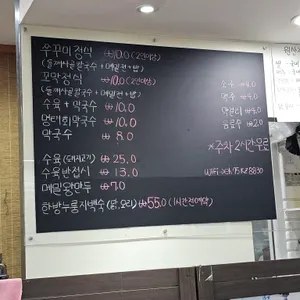 쭈꾸미정식 ₩10.0 (2인이상)
(들깨사골칼국수 + 메밀전 + 밥)
꼬막정식 ₩10.0 (2인이상)
(들깨사골칼국수 + 메밀전 + 밥)
수육 + 막국수 ₩10.0
명태회막국수 ₩10.0
막국수 ₩8.0
수육 (돼지고기) ₩25.0
수육반접시 ₩13.0
메밀왕만두 ₩7.0
한방누룽지백숙 (닭,오리) ₩55.0 (1시간전예약)
소주 ₩4.0
맥주 ₩4.0
막걸리 ₩4.0
음료수 ₩2.0
*주차 2시간무료